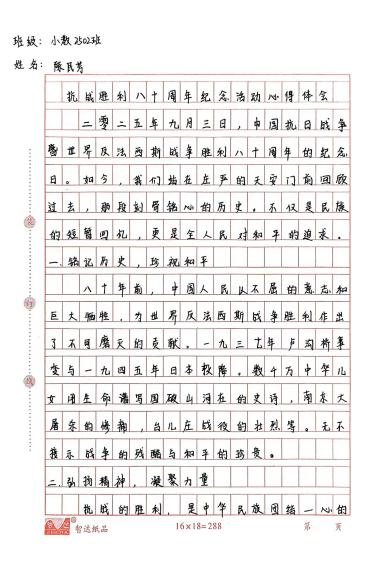 班级：小数2502班
姓名：陈民芳
抗战胜利八十周年纪念活动心得体会
二零二五年九月三日，中国抗日战争
暨世界反法西斯战争胜利八十周年的纪念
日。如今，我们站在庄严的天安门前回顾
过去，那段刻骨铭心的历史。不仅是民族
的短暂回忆，更是全人民对和平的追求。
一、铭记历史，珍视和平
八十年前，中国人民以不屈的意志和
巨大牺牲，为世界反法西斯战争胜利作出
了不可磨灭的贡献。一九三七年卢沟桥事
变与一九四五年日本投降。数千万中华儿
女用生命谱写国破山河在的史诗，南京大
屠杀的惨痛，台儿庄战役的壮烈等。无不
揭示战争的残酷与和平的珍贵。
二、弘扬精神，凝聚力量
抗战的胜利，是中华民族团结一心的
装
订
线
智达纸品
16×18=288
第 页